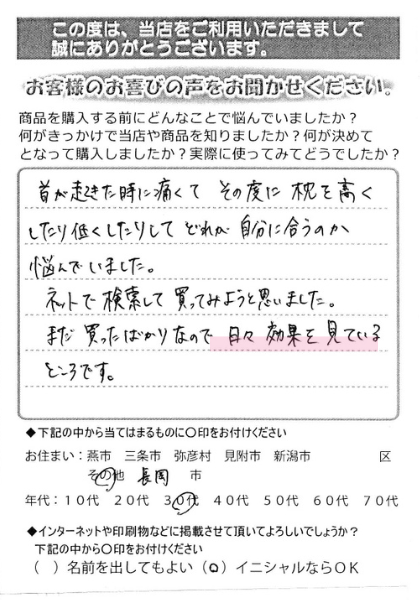 この度は、当店をご利用いただきまして
誠にありがとうございます。
お客様のお喜びの声をお聞かせください。
商品を購入する前にどんなことで悩んでいましたか？
何がきっかけで当店や商品を知りましたか？何が決めて
となって購入しましたか？実際に使ってみてどうでしたか？
首が起きた時に痛くて その度に 枕を高く
したり低くしたりして どれが 自分に合うのか
悩んでいました。
ネットで 検索して 買ってみようと思いました。
まだ 買ったばかりなので 日々 効果を 見ている
ところです。
◆下記の中から当てはまるものに〇印をお付けください
お住まい：燕市 三条市 弥彦村 見附市 新潟市 区
その他 長岡 市
年代：１０代 ２０代 ３０代 ４０代 ５０代 ６０代 ７０代
◆インターネットや印刷物などに掲載させて頂いてよろしいでしょうか？
下記の中から〇印をお付けください
（ ）名前を出してもよい（〇）イニシャルならＯＫ